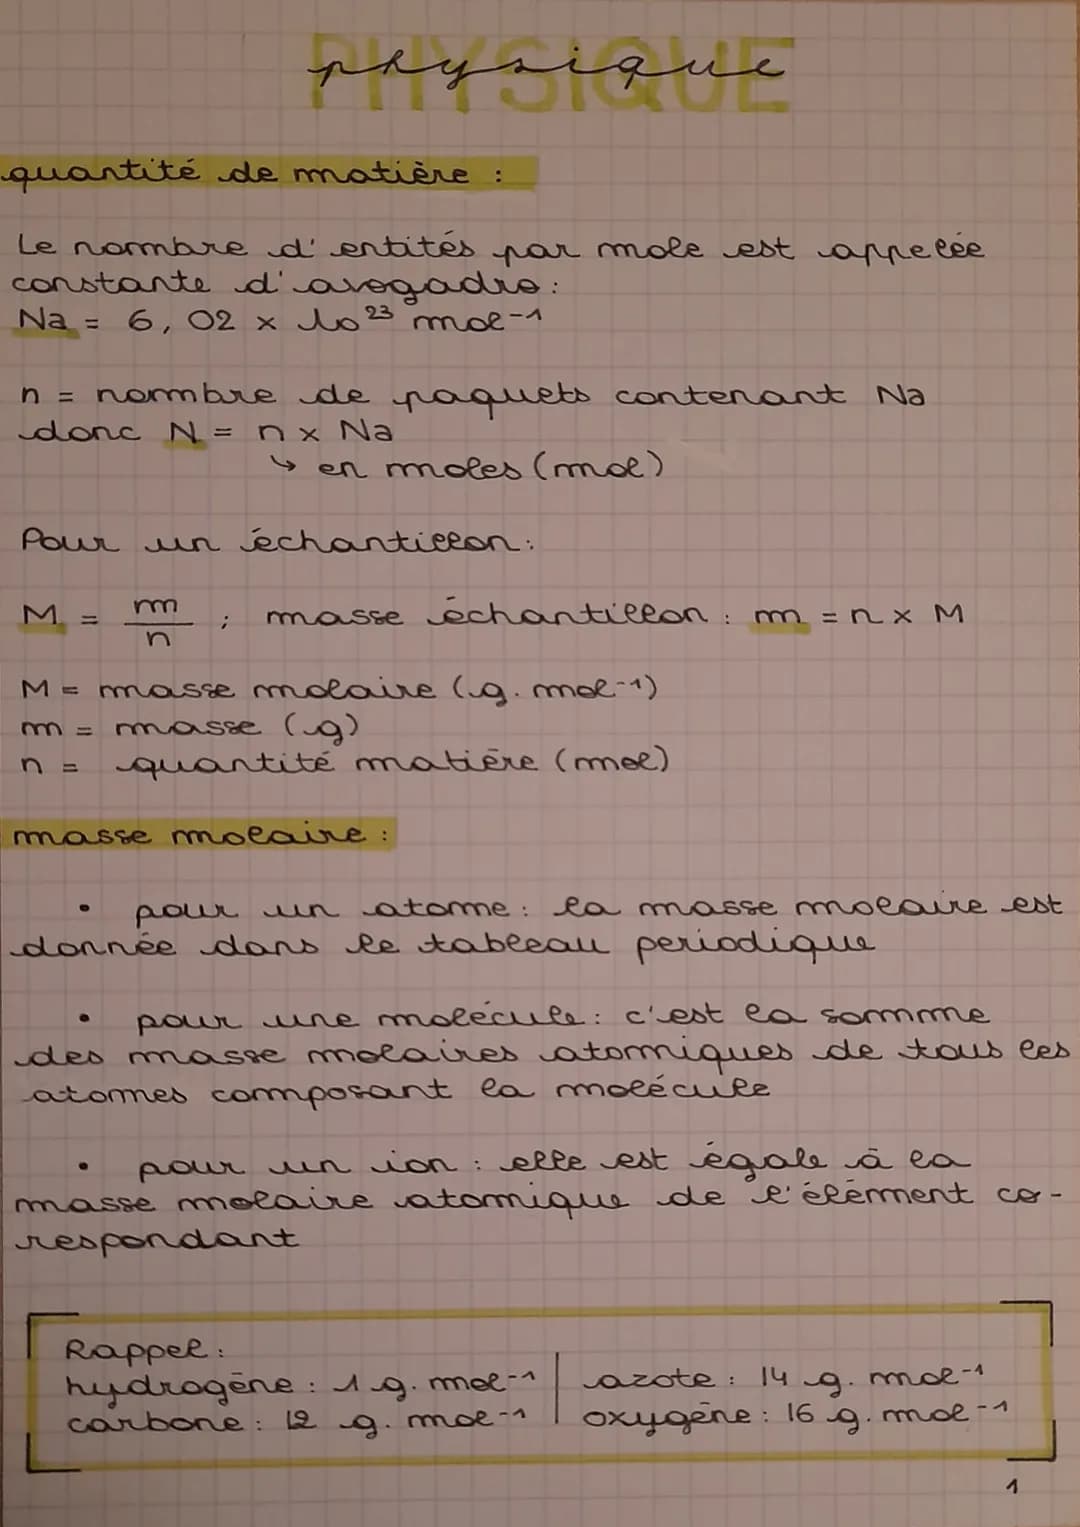 PHYSIQUE
physique
quantité de matière :
Le nombre d'entités par mole est appelée
constante d'avogadro :
Na = 6,02 x 10²³ mol⁻¹
n = nombre de paquets contenant Na
donc N = n x Na
↳ en moles (mol)
Pour un échantillon :
M = m/n ; masse échantillon : m = n x M
M = masse molaire (g.mol⁻¹)
m = masse (g)
n = quantité matière (mol)
masse molaire :
• pour un atome : la masse molaire est
donnée dans le tableau periodique
• pour une molécule : c'est la somme
des masse molaires atomiques de tous les
atomes composant la molécule
• pour un ion : elle est égale à la
masse molaire atomique de l'élément co-
respondant
Rappel :
hydrogène : 1 g.mol⁻¹ | azote : 14 g.mol⁻¹
carbone : 12 g.mol⁻¹ | oxygène : 16 g.mol⁻¹
1